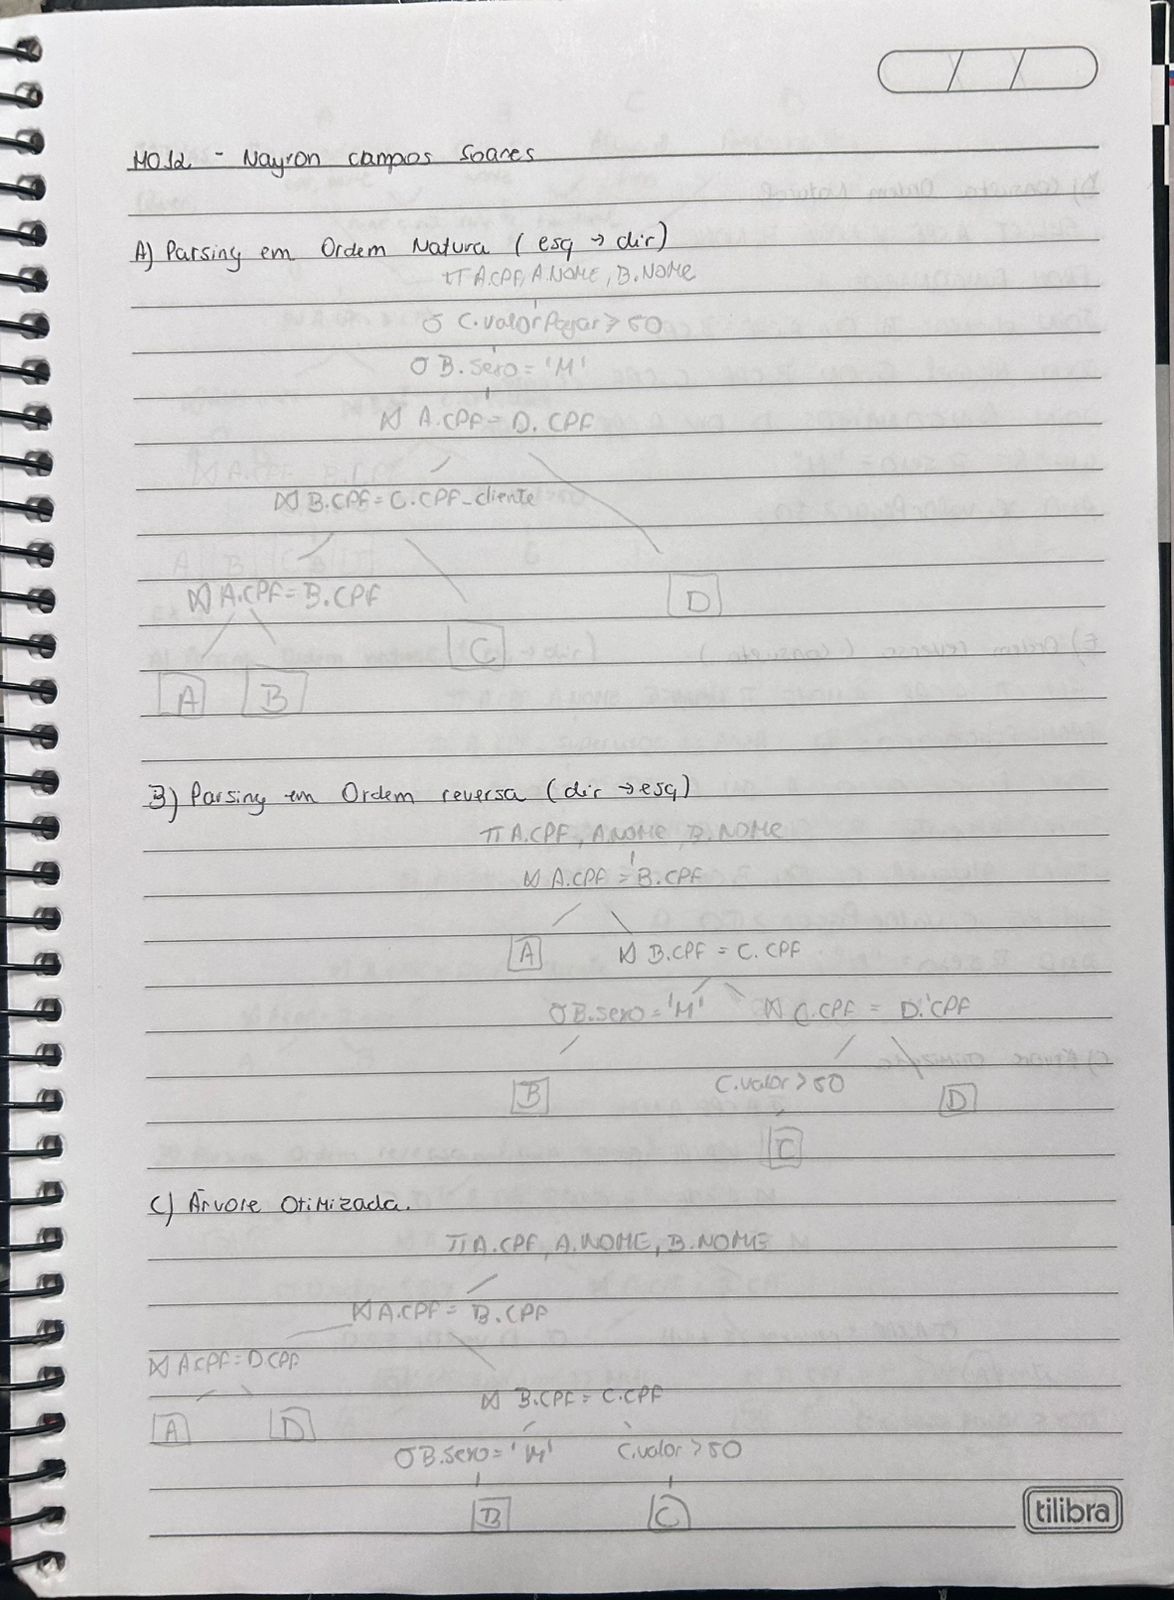 MO.12 - Nayron campos Soares
A) Parsing em Ordem Natura ( esq → dir)
π A.CPF, A.NOME, B.NOME
σ C.valorPagar > 50
σ B.sexo = 'M'
⋈ A.CPF = D.CPF
⋈ B.CPF = C.CPF_cliente
⋈ A.CPF = B.CPF
D
C
A B
B) Parsing em Ordem reversa (dir → esq)
π A.CPF, A.NOME, B.NOME
⋈ A.CPF = B.CPF
A ⋈ B.CPF = C.CPF
σ B.sexo = 'M' ⋈ C.CPF = D.CPF
B C.valor > 50 D
C
C) Árvore Otimizada.
π A.CPF, A.NOME, B.NOME
⋈ A.CPF = B.CPF
⋈ A.CPF = D.CPF
⋈ B.CPF = C.CPF
A D
σ B.sexo = 'M' C.valor > 50
B C
tilibra